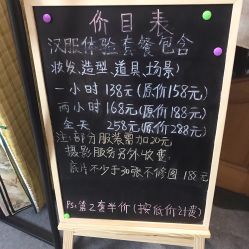 价目表
汉服体验套餐包含
妆发,造型,道具,场景)
一小时138元(原价158元)
两小时168元(原价188元)
全天 258元(原价288元)
注:部分服装累加20元
摄影服务另外收费:
底片不少于30张不修图188元
PS:第2套半价(按低价计费)